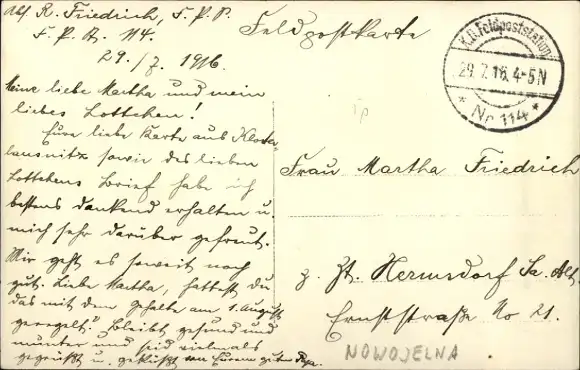 Abs. R. Friedrich, F. P. P.
F. P. St. 114.
29./7. 1916.
Feldpostkarte
K.D. Feldpoststation
29.7.16. 4-5N
* Nr. 114 *
Meine liebe Martha und mein
liebes Lottchen!
Eure liebe Karte aus Kloster-
lausnitz sowie des lieben
Lottchens Brief habe ich
bestens dankend erhalten u.
mich sehr darüber gefreut.
Mir geht es soweit noch
gut. Liebe Martha, hattest du
das mit dem Gehalte am 1. August
geregelt? Bleibt gesund und
munter und seid vielmals
gegrüßt u. geküßt von Eurem guten Papa.
Frau Martha Friedrich
z. Zt. Hermsdorf Sa. Alt.
Ernststraße No 21.
NOWOJELNA